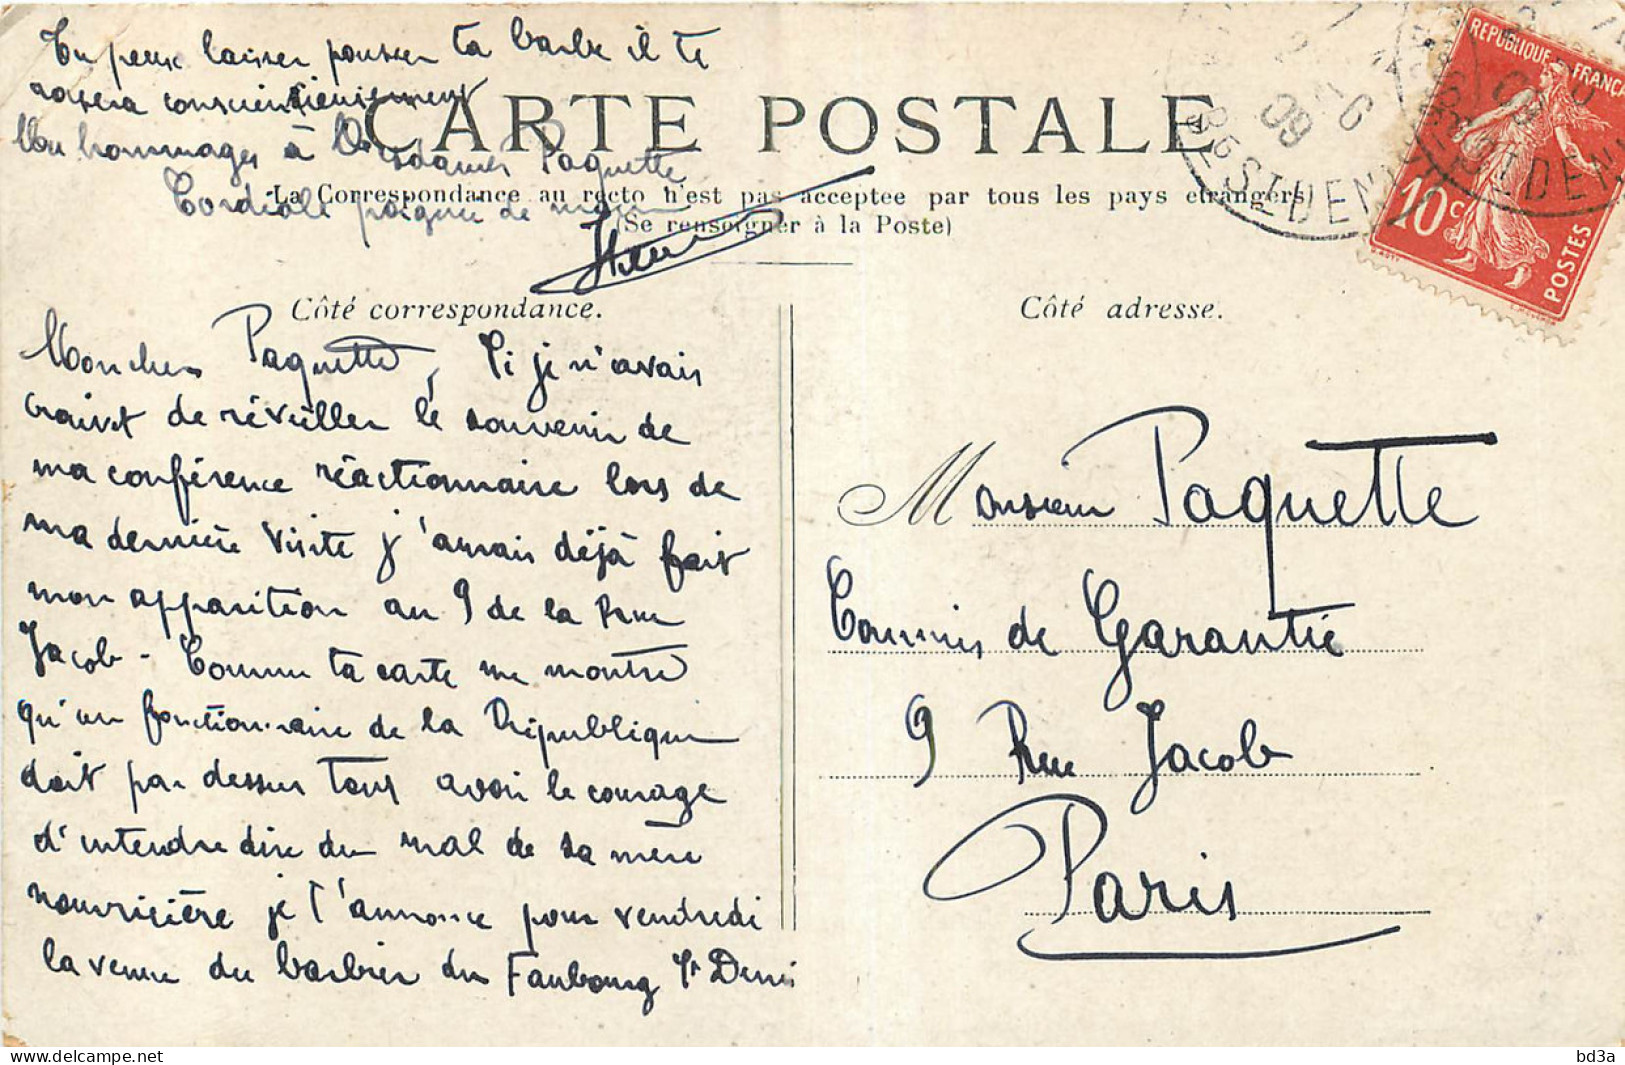 Tu peux laisser pousser ta barbe il te
rasera consciencieusement
hommages à Mesdames Paquette
Cordiale poignée de main
CARTE POSTALE
La Correspondance au recto n'est pas acceptee par tous les pays etrangers
(Se renseigner à la Poste)
Côté correspondance.
Mon cher Paquette, Si je n'avais
craint de réveiller le souvenir de
ma conférence réactionnaire lors de
ma dernière visite j'aurais déjà fait
mon apparition au 9 de la Rue
Jacob - Comme ta carte me montre
qu'un fonctionnaire de la République
doit par dessus tout avoir le courage
d'entendre dire du mal de sa mère
nourricière je t'annonce pour vendredi
la venue du barbier du Faubourg St Denis
Côté adresse.
Monsieur Paquette
Commis de Garantie
9 Rue Jacob
Paris
REPUBLIQUE FRANCA
10c
POSTES
ST DENIS
09
mardi 26 novembre 2024
bd3a